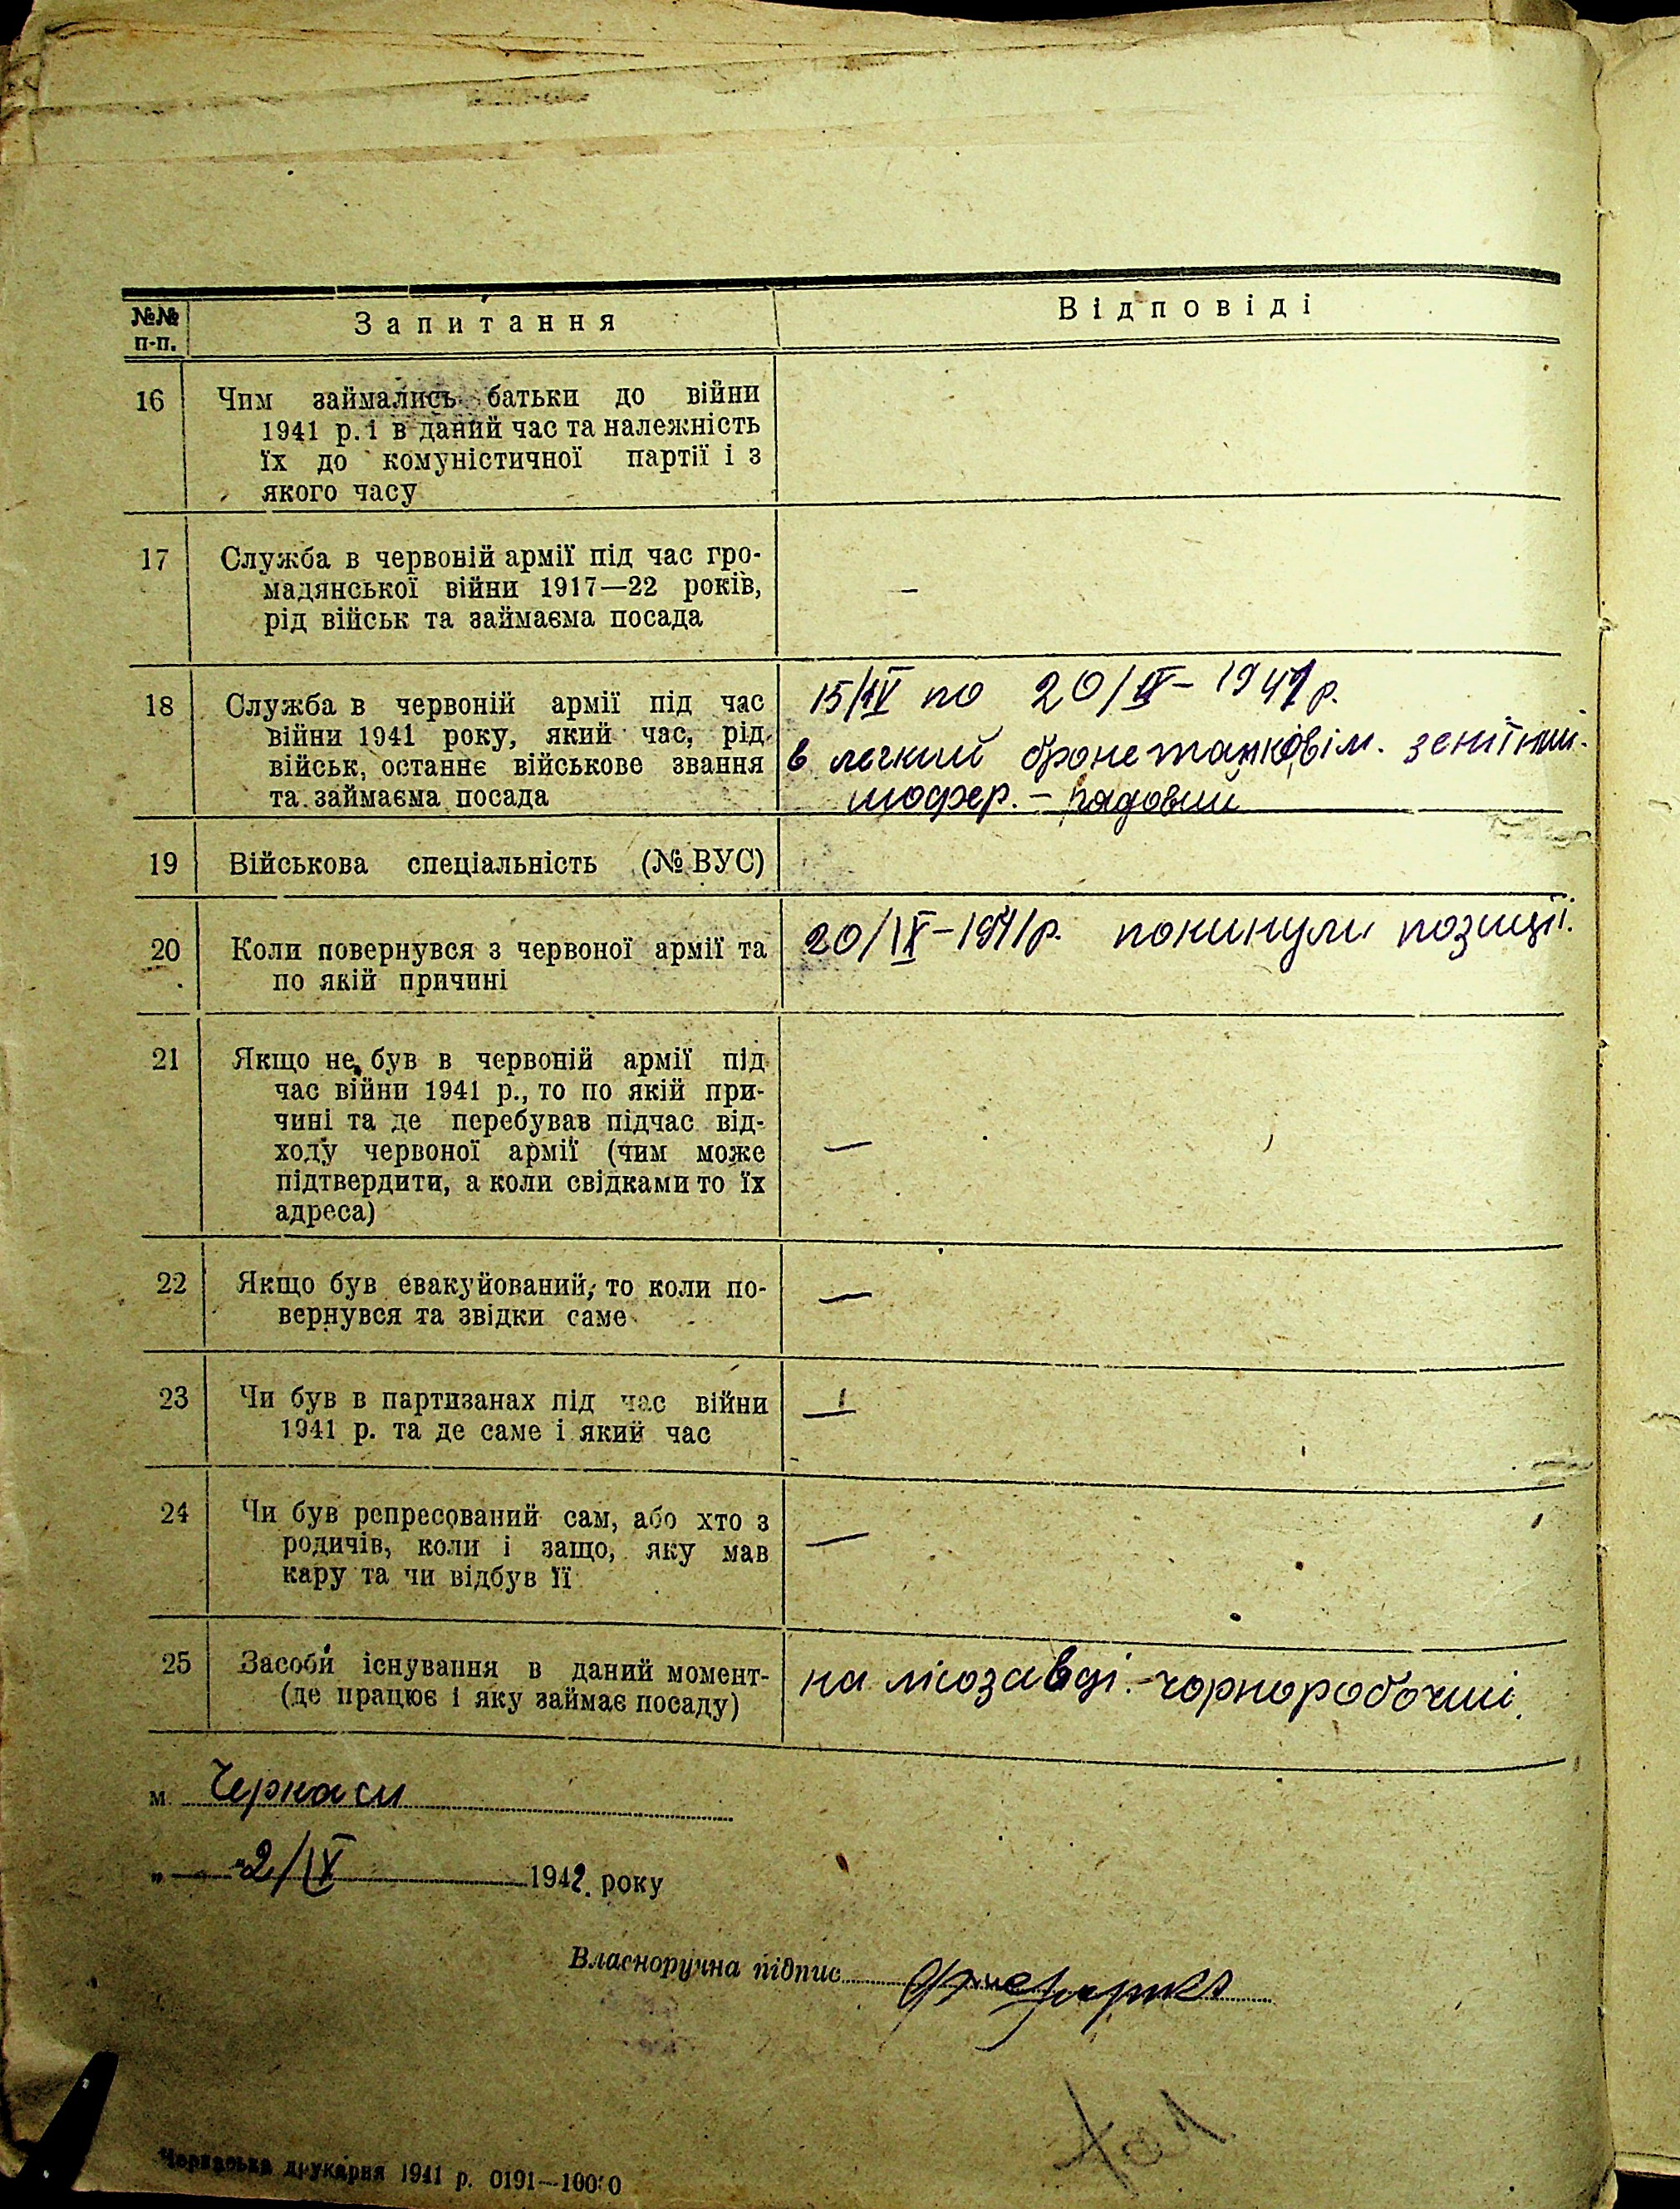 №№ п-п.
Запитання
Відповіді
16
Чим займались батьки до війни
1941 р. і в даний час та належність
їх до комуністичної партії і з
якого часу
17
Служба в червоній армії під час гро-
мадянської війни 1917—22 років,
рід військ та займаєма посада
–
18
Служба в червоній армії під час
війни 1941 року, який час, рід
військ, останнє військове звання
та займаєма посада
15/IV по 20/IX – 1941 р.
в легкий
шофер. – рядовий
19
Військова спеціальність (№ ВУС)
20
Коли повернувся з червоної армії та
по якій причині
20/IX – 1941 р. покинули позиції.
21
Якщо не був в червоній армії під
час війни 1941 р., то по якій при-
чині та де перебував підчас від-
ходу червоної армії (чим може
підтвердити, а коли свідками то їх
адреса)
—
22
Якщо був евакуйований, то коли по-
вернувся та звідки саме
—
23
Чи був в партизанах під час війни
1941 р. та де саме і який час
—
24
Чи був репресований сам, або хто з
родичів, коли і защо, яку мав
кару та чи відбув її
—
25
Засоби існування в даний момент-
(де працює і яку займає посаду)
на лісозавді. – чорноробочий.
м. Черкаси
„ — " 2/IX 1942. року
Власноручна підпис
Черкаська друкарня 1941 р. 0191—10000